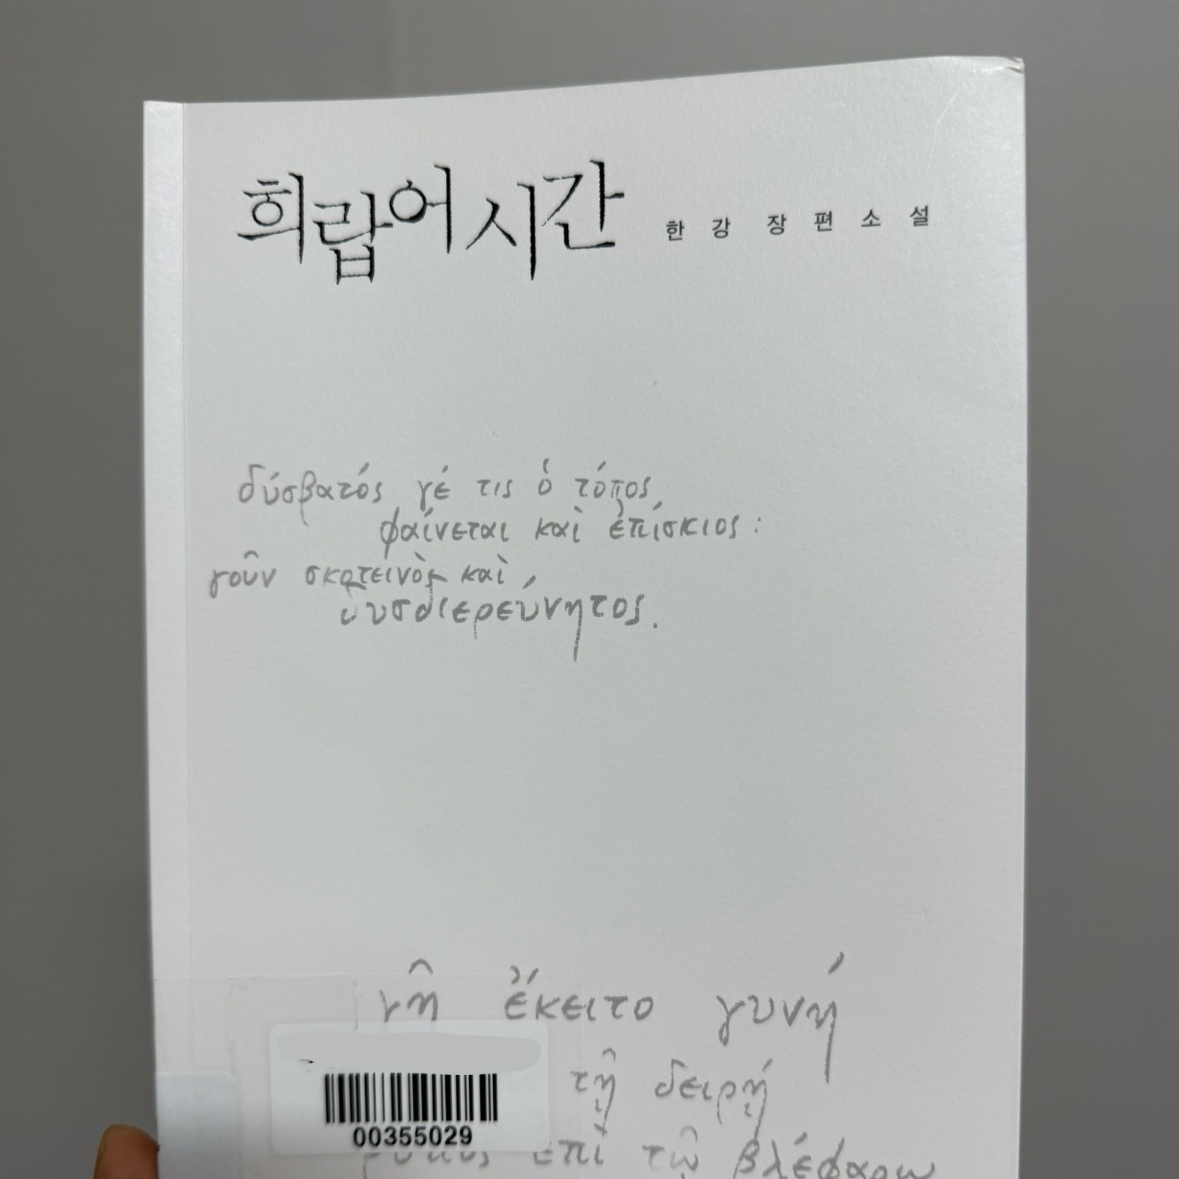 희랍어 시간 한강 장편소설
δύσβατός γέ τις ὁ τόπος
φαίνεται καὶ ἐπίσκιος:
γοῦν σκοτεινὸς καὶ
δυσδιερεύνητος.
γῆ ἔκειτο γυνή
τῇ δειρῇ
00355029
ἐπὶ τῷ βλέφαρω